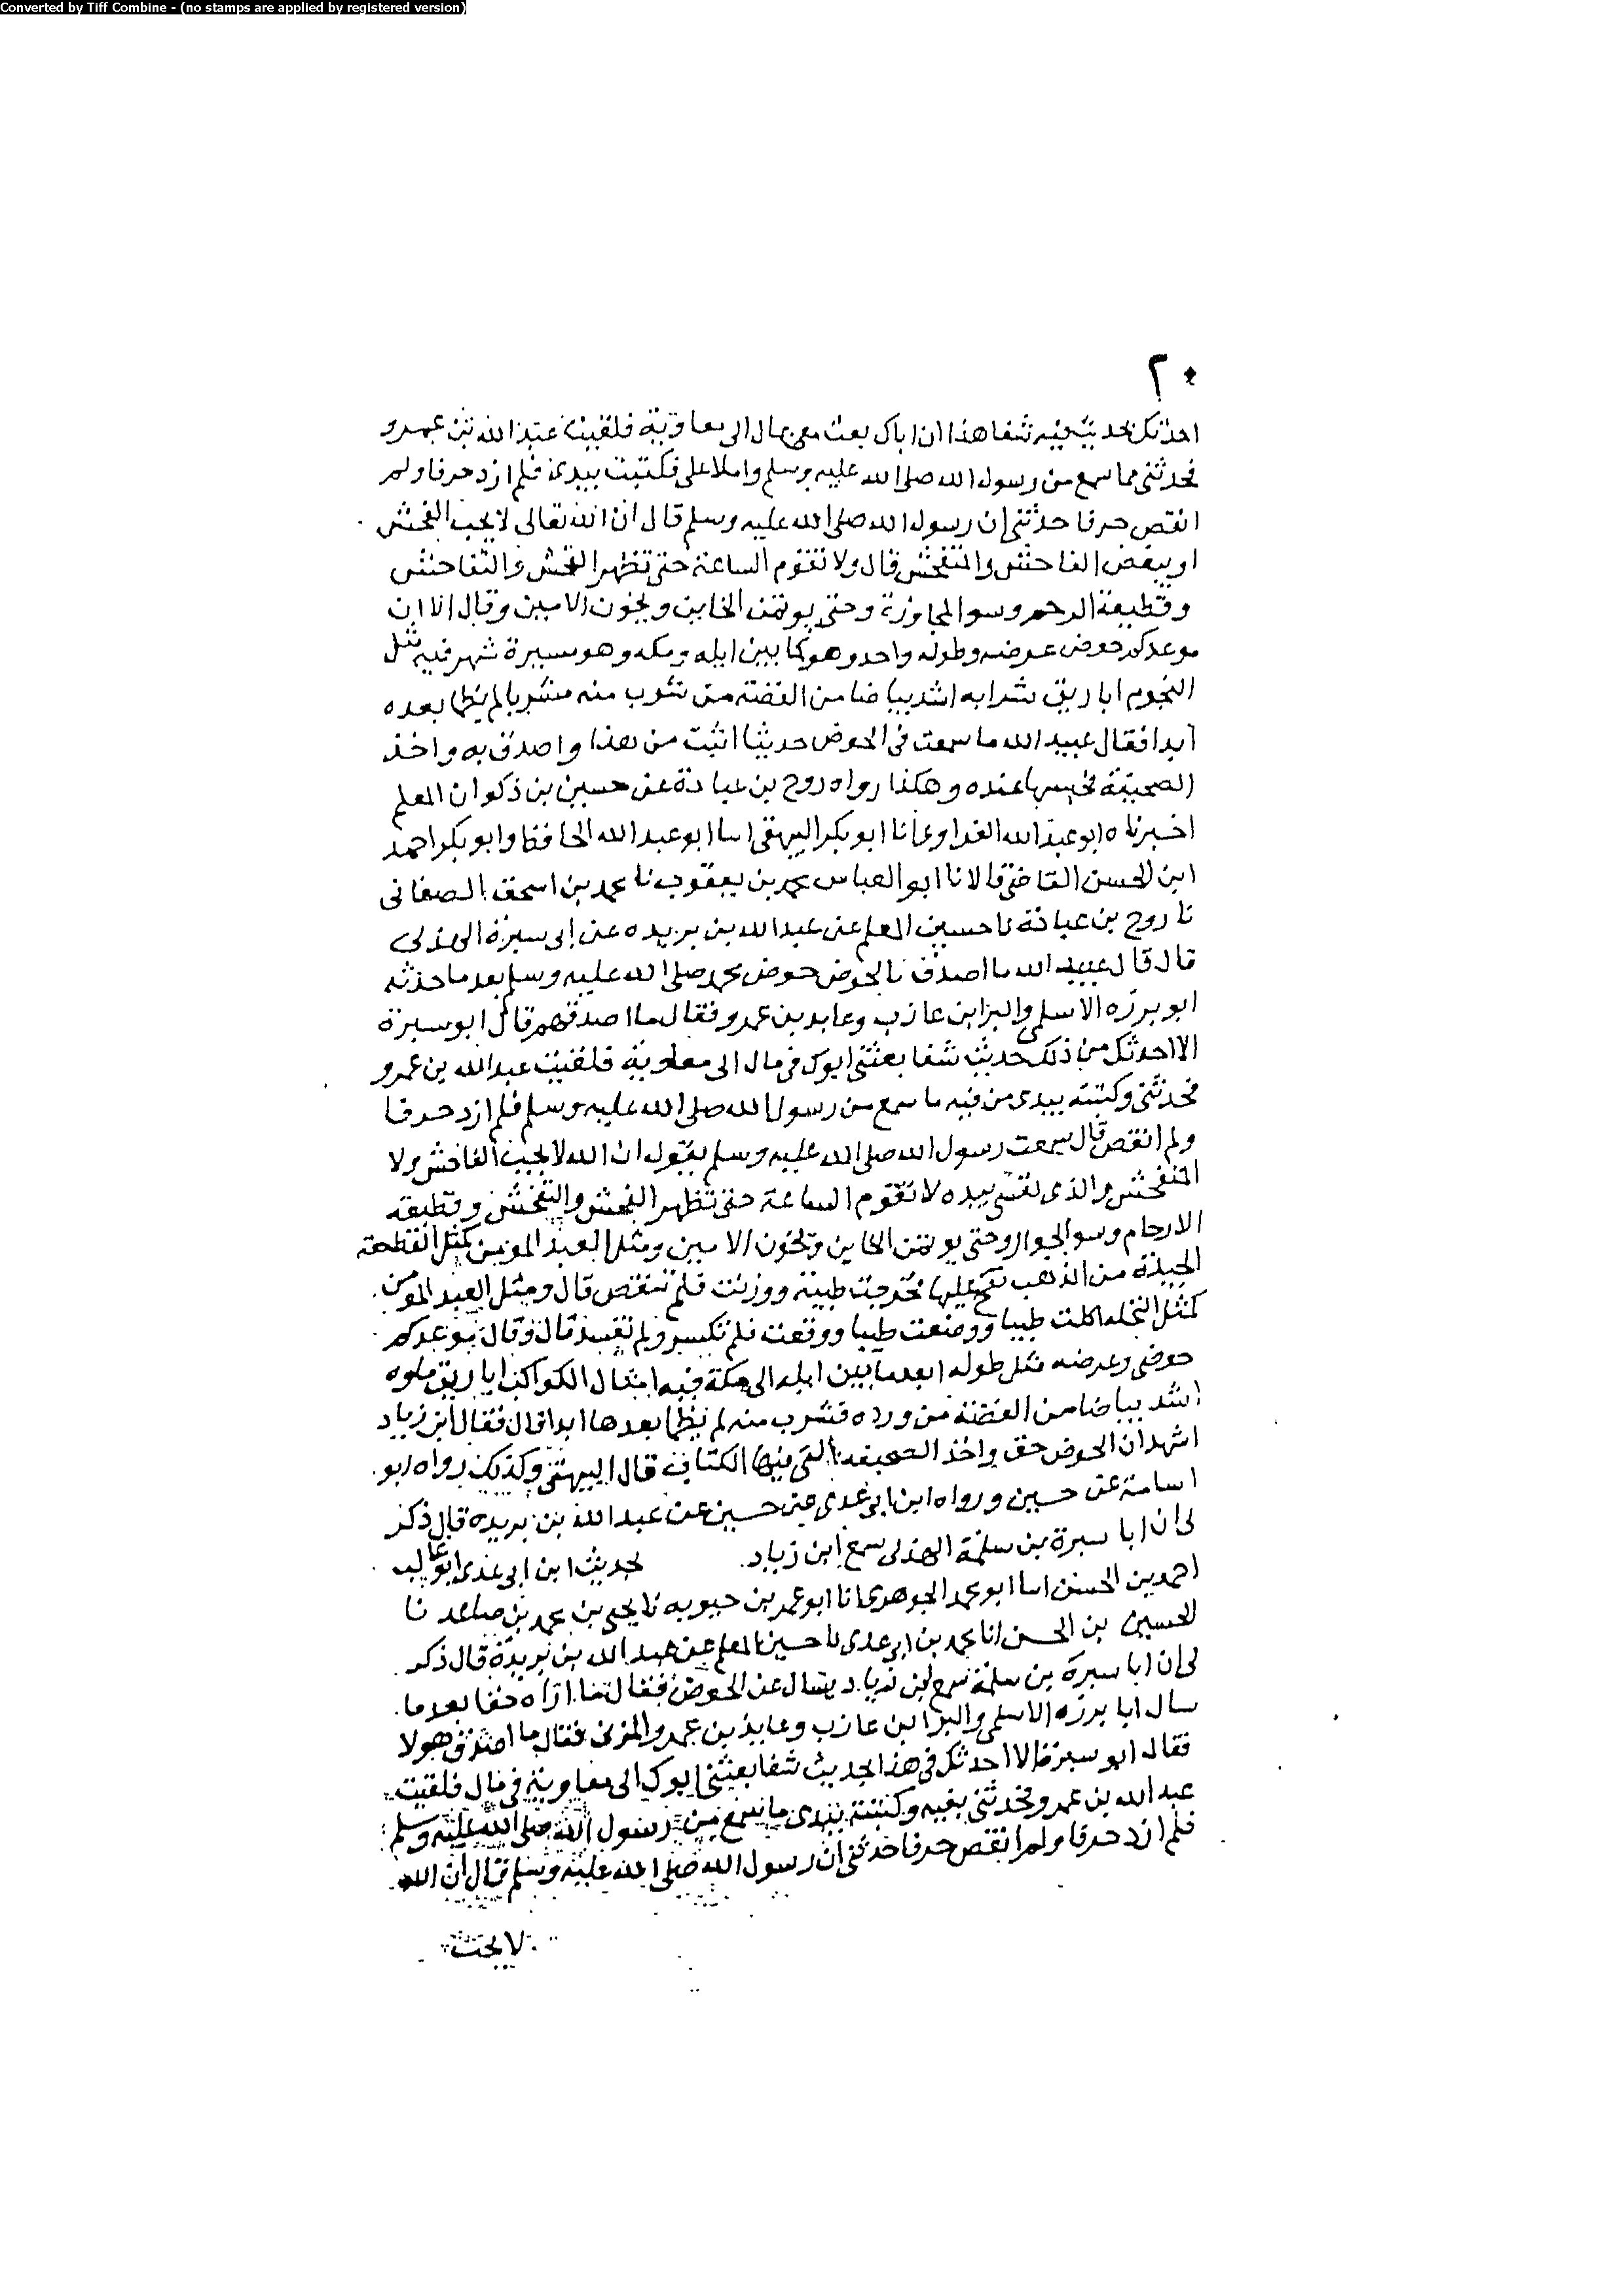 Converted by Tiff Combine - (no stamps are applied by registered version)
٢٠
احدثك بحديث فيه شفا هذا ان اباك بعث معي بمال الى معاوية فلقيت عبد الله بن عمرو
فحدثني مما سمع من رسول الله صلى الله عليه وسلم واملا علي فكتبت بيدي فلم ازد حرفا ولم
انقص حرفا حدثني ان رسول الله صلى الله عليه وسلم قال ان الله تعالى لا يحب الفحش
او يبغض الفاحش والمتفحش قال ولا تقوم الساعة حتى تظهر الفحش والتفاحش
وقطيعة الرحم وسو المجاورة وحتى يوتمن الخاين ويخون الامين وقال الا ان
موعدكم حوض عرضه وطوله واحد وهو كما بين ايله ومكه وهو مسيرة شهر فيه مثل
النجوم اباريق شرابه اشد بياضا من الفضة من شرب منه مشربا لم يظما بعده
ابدا فقال عبيد الله ما سمعت في الحوض حديثا اثبت من هذا واصدق به واخذ
الصحيفة فحبسها عنده وهكذا رواه روح بن عبادة عن حسين بن ذكوان المعلم
اخبرناه ابو عبد الله الفراوي انا ابو بكر البيهقي اسا ابو عبد الله الحافظ وابو بكر احمد
ابن الحسن القاضي قالا نا ابو العباس محمد بن يعقوب نا محمد بن اسحق الصغاني
نا روح بن عبادة نا حسين المعلم عن عبد الله بن بريده عن ابي سبرة الهذلي
قال قال عبيد الله ما اصدق بالحوض حوض محمد صلى الله عليه وسلم بعد ما حدثه
ابو برزه الاسلمي والبرا بن عازب وعايد بن عمرو فقال ما اصدقهم قال ابو سبرة
الا احدثك من ذلك حديث شفا بعثني ابوك في مال الى معاوية فلقيت عبد الله بن عمرو
فحدثني وكتبته بيدي من فيه ما سمع من رسول الله صلى الله عليه وسلم فلم ازد حرفا
ولم انقص قال سمعت رسول الله صلى الله عليه وسلم يقول ان الله لا يحب الفاحش ولا
المتفحش والذي نفسي بيده لا تقوم الساعة حتى تظهر الفحش والتفحش وقطيعة
الارحام وسو الجوار وحتى يوتمن الخاين ويخون الامين ومثل العبد المومن كمثل القطعة
الجيدة من الذهب نفخ عليها فخرجت طيبة ووزنت فلم تنقص قال ومثل العبد المومن
كمثل النخله اكلت طيبا ووضعت طيبا ووقعت فلم تكسر ولم تفسد قال وقال موعدكم
حوضي وعرضه مثل طوله ابعد ما بين ايله الى مكة فيه امثال الكواكب اباريق ماوه
اشد بياضا من الفضة من ورده فشرب منه لم يظما بعدها ابدا قال فقال ابن زياد
اشهد ان الحوض حق واخذ الصحيفة التي فيها الكتاب قال البيهقي وكذلك رواه ابو
اسامة عن حسين ورواه ابن ابي عدي عن حسين عن عبد الله بن بريده قال ذكر
لي ان ابا سبرة بن سلمة الهذلي سمع ابن زياد بحديث ابن ابي عدي ابو غالب
احمد بن الحسن اسا ابو محمد الجوهري انا ابو عمر بن حيويه نا يحيى بن محمد بن صاعد نا
الحسين بن الحسن انا محمد بن ابي عدي نا حسين المعلم عن عبد الله بن بريدة قال ذكر
لي ان ابا سبرة بن سلمة سمع ابن زياد يسال عن الحوض فقال ما اراه حقا بعد ما
سال ابا برزه الاسلمي والبرا بن عازب وعايذ بن عمرو المزني فقال ما اصدق هولا
فقال ابو سبرة الا احدثك في هذا الحديث شفا بعثني ابوك الى معاوية في مال فلقيت
عبد الله بن عمرو فحدثني بفيه وكتبته بيدي ما سمع من رسول الله صلى الله عليه وسلم
فلم ازد حرفا ولم انقص حرفا حدثني ان رسول الله صلى الله عليه وسلم قال ان الله
لا يحب